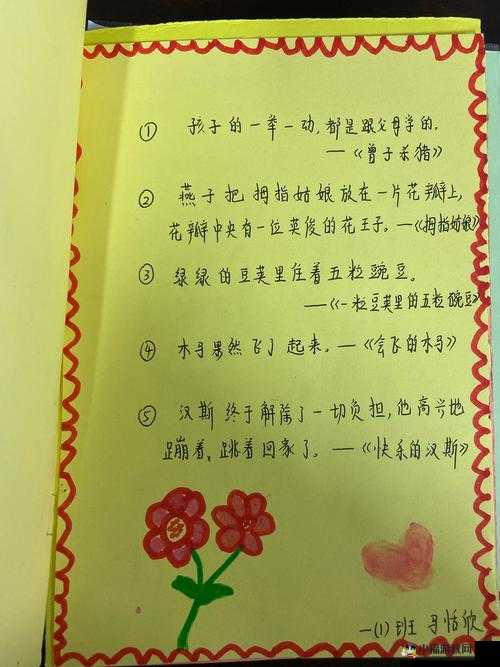 ① 孩子的一举一动,都是跟父母学的。
—《曾子杀猪》
② 燕子把拇指姑娘放在一片花瓣上,
花瓣中央有一位英俊的花王子。—《拇指姑娘》
③ 绿绿的豆荚里住着五粒豌豆。
—《一粒豆荚里的五粒豌豆》
④ 木马果然飞了起来。—《会飞的木马》
⑤ 汉斯终于解除了一切负担,他高兴地
蹦着,跳着回家了。—《快乐的汉斯》
一(1)班 马恬欣